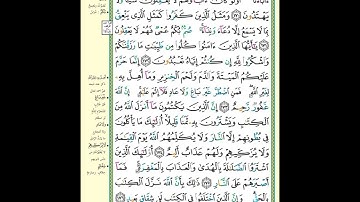 يَهْتَدُونَ ۝ وَمَثَلُ ٱلَّذِينَ كَفَرُوا۟ كَمَثَلِ ٱلَّذِى يَنْعِقُ
بِمَا لَا يَسْمَعُ إِلَّا دُعَآءً وَنِدَآءً ۚ صُمٌّۢ بُكْمٌ عُمْىٌ فَهُمْ لَا يَعْقِلُونَ
۝ يَٰٓأَيُّهَا ٱلَّذِينَ ءَامَنُوا۟ كُلُوا۟ مِن طَيِّبَٰتِ مَا رَزَقْنَٰكُمْ
وَٱشْكُرُوا۟ لِلَّهِ إِن كُنتُمْ إِيَّاهُ تَعْبُدُونَ ۝ إِنَّمَا حَرَّمَ
عَلَيْكُمُ ٱلْمَيْتَةَ وَٱلدَّمَ وَلَحْمَ ٱلْخِنزِيرِ وَمَآ أُهِلَّ بِهِۦ
لِغَيْرِ ٱللَّهِ ۖ فَمَنِ ٱضْطُرَّ غَيْرَ بَاغٍ وَلَا عَادٍ فَلَآ إِثْمَ عَلَيْهِ ۚ إِنَّ ٱللَّهَ
غَفُورٌ رَّحِيمٌ ۝ إِنَّ ٱلَّذِينَ يَكْتُمُونَ مَآ أَنزَلَ ٱللَّهُ مِنَ
ٱلْكِتَٰبِ وَيَشْتَرُونَ بِهِۦ ثَمَنًا قَلِيلًا ۙ أُو۟لَٰٓئِكَ مَا يَأْكُلُونَ
فِى بُطُونِهِمْ إِلَّا ٱلنَّارَ وَلَا يُكَلِّمُهُمُ ٱللَّهُ يَوْمَ ٱلْقِيَٰمَةِ
وَلَا يُزَكِّيهِمْ وَلَهُمْ عَذَابٌ أَلِيمٌ ۝ أُو۟لَٰٓئِكَ ٱلَّذِينَ
ٱشْتَرَوُا۟ ٱلضَّلَٰلَةَ بِٱلْهُدَىٰ وَٱلْعَذَابَ بِٱلْمَغْفِرَةِ ۚ فَمَآ
أَصْبَرَهُمْ عَلَى ٱلنَّارِ ۝ ذَٰلِكَ بِأَنَّ ٱللَّهَ نَزَّلَ ٱلْكِتَٰبَ
بِٱلْحَقِّ ۗ وَإِنَّ ٱلَّذِينَ ٱخْتَلَفُوا۟ فِى ٱلْكِتَٰبِ لَفِى شِقَاقٍۭ بَعِيدٍ